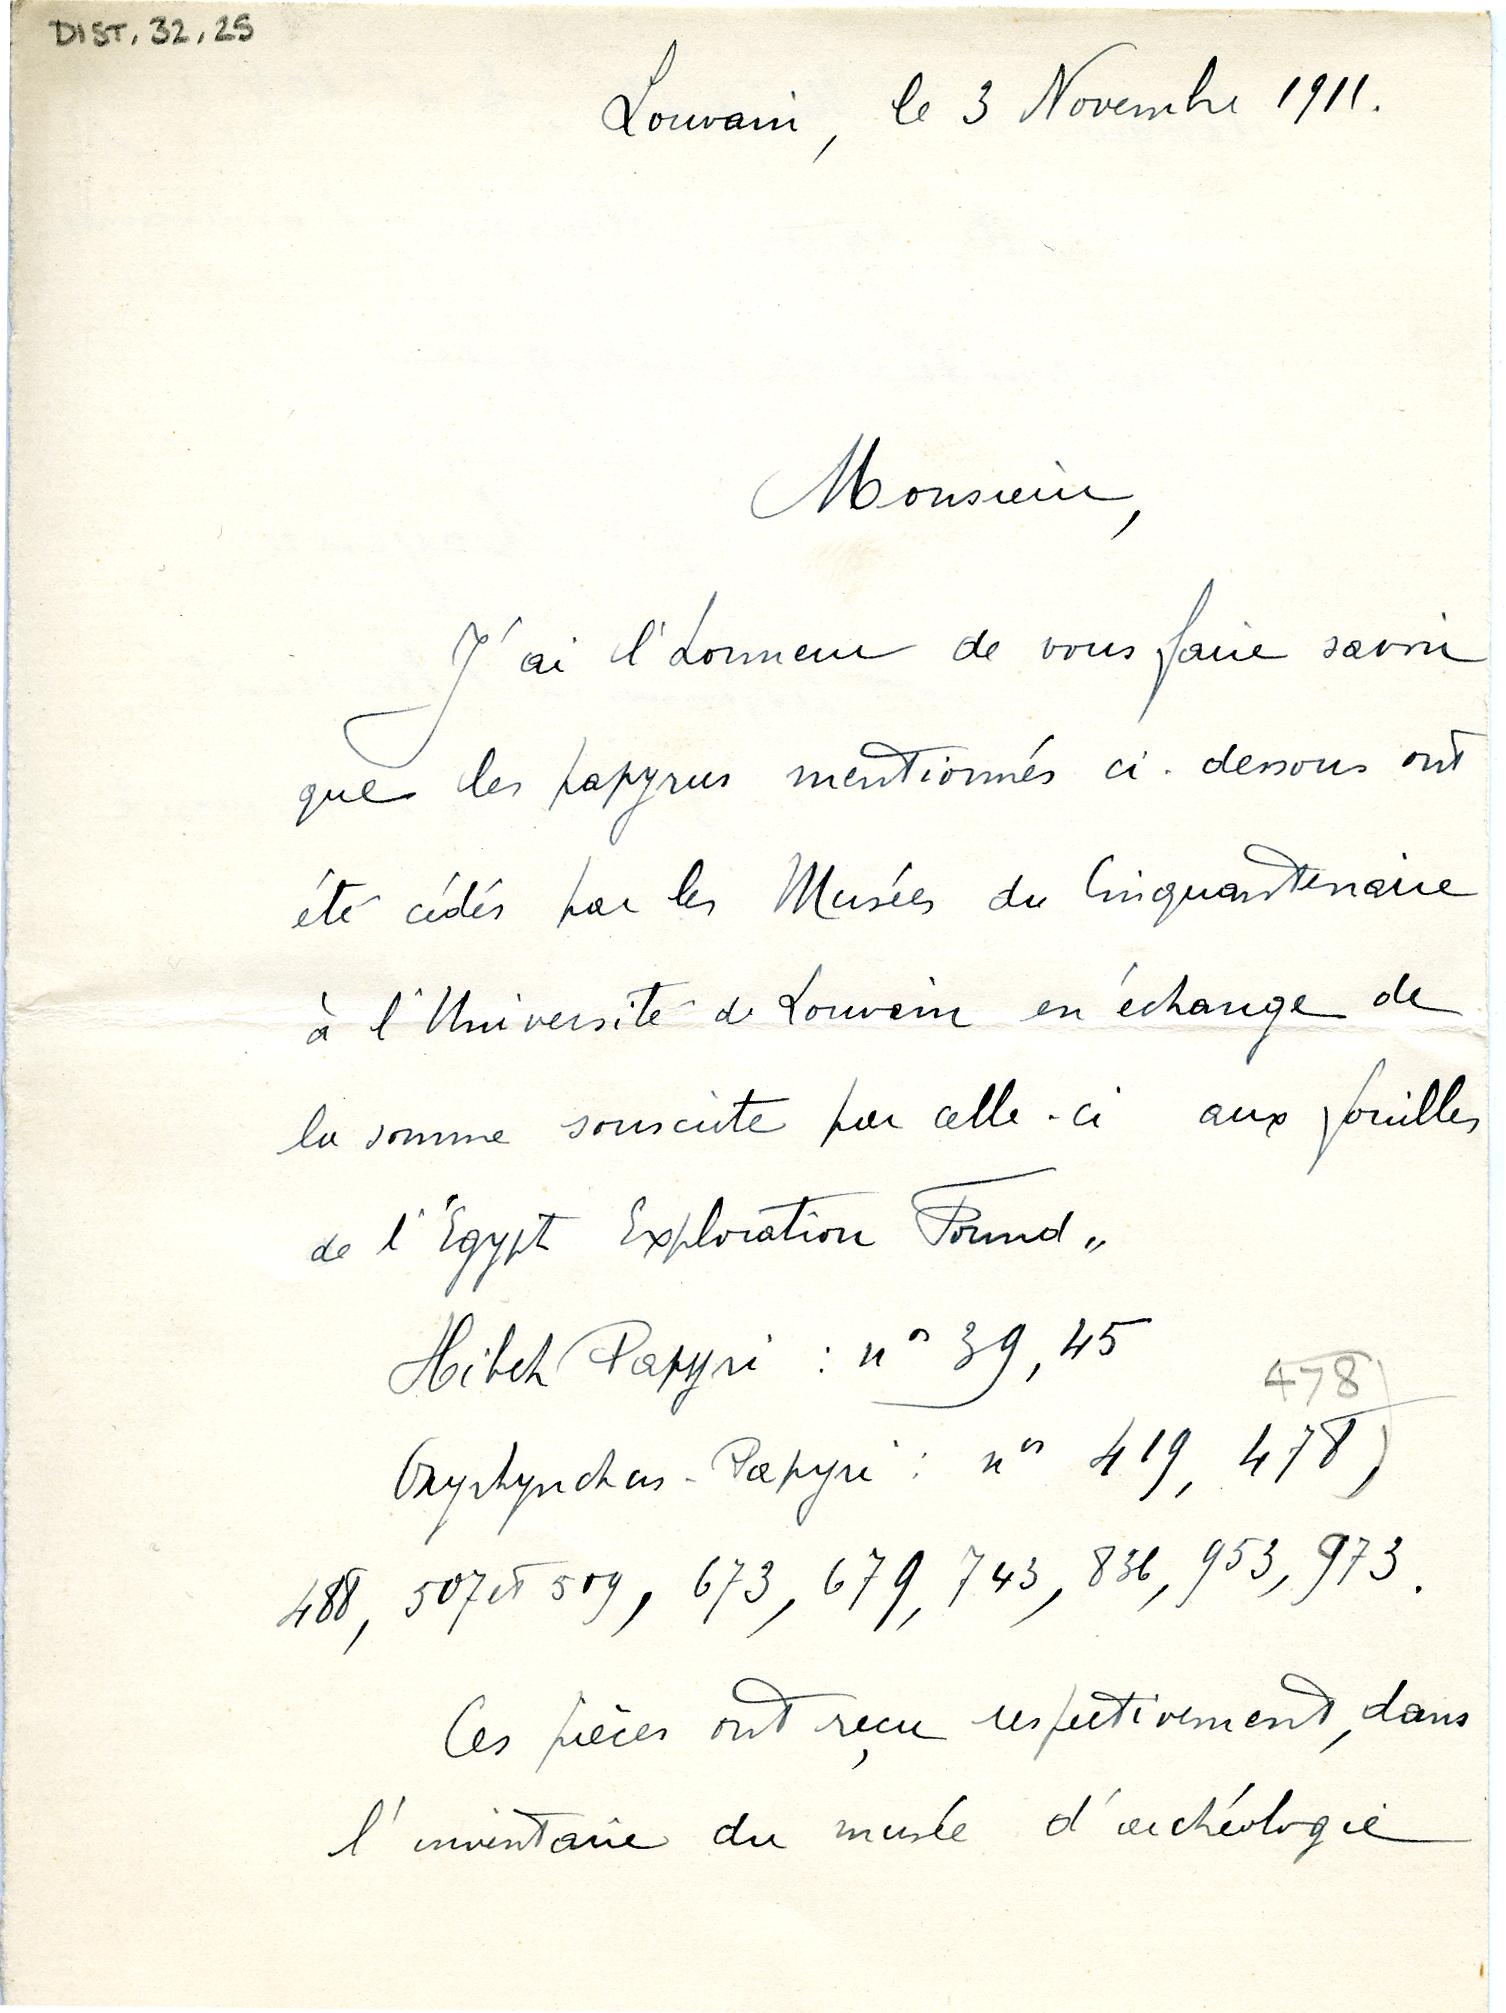 DIST. 32, 25
Louvain, le 3 Novembre 1911.
Monsieur,
J'ai l'honneur de vous faire savoir
que les papyrus mentionnés ci-dessous ont
été cédés par les Musées du Cinquantenaire
à l'Université de Louvain en échange de
la somme souscrite par celle-ci aux fouilles
de l'"Egypt Exploration Found"
Hibeh Papyri : nos 39, 45
478)
Oxyrhynchus-Papyri : nos 419, 478,
488, 507 et 509, 673, 679, 743, 836, 953, 973.
Ces pièces ont reçu respectivement, dans
l'inventaire du musée d'archéologie